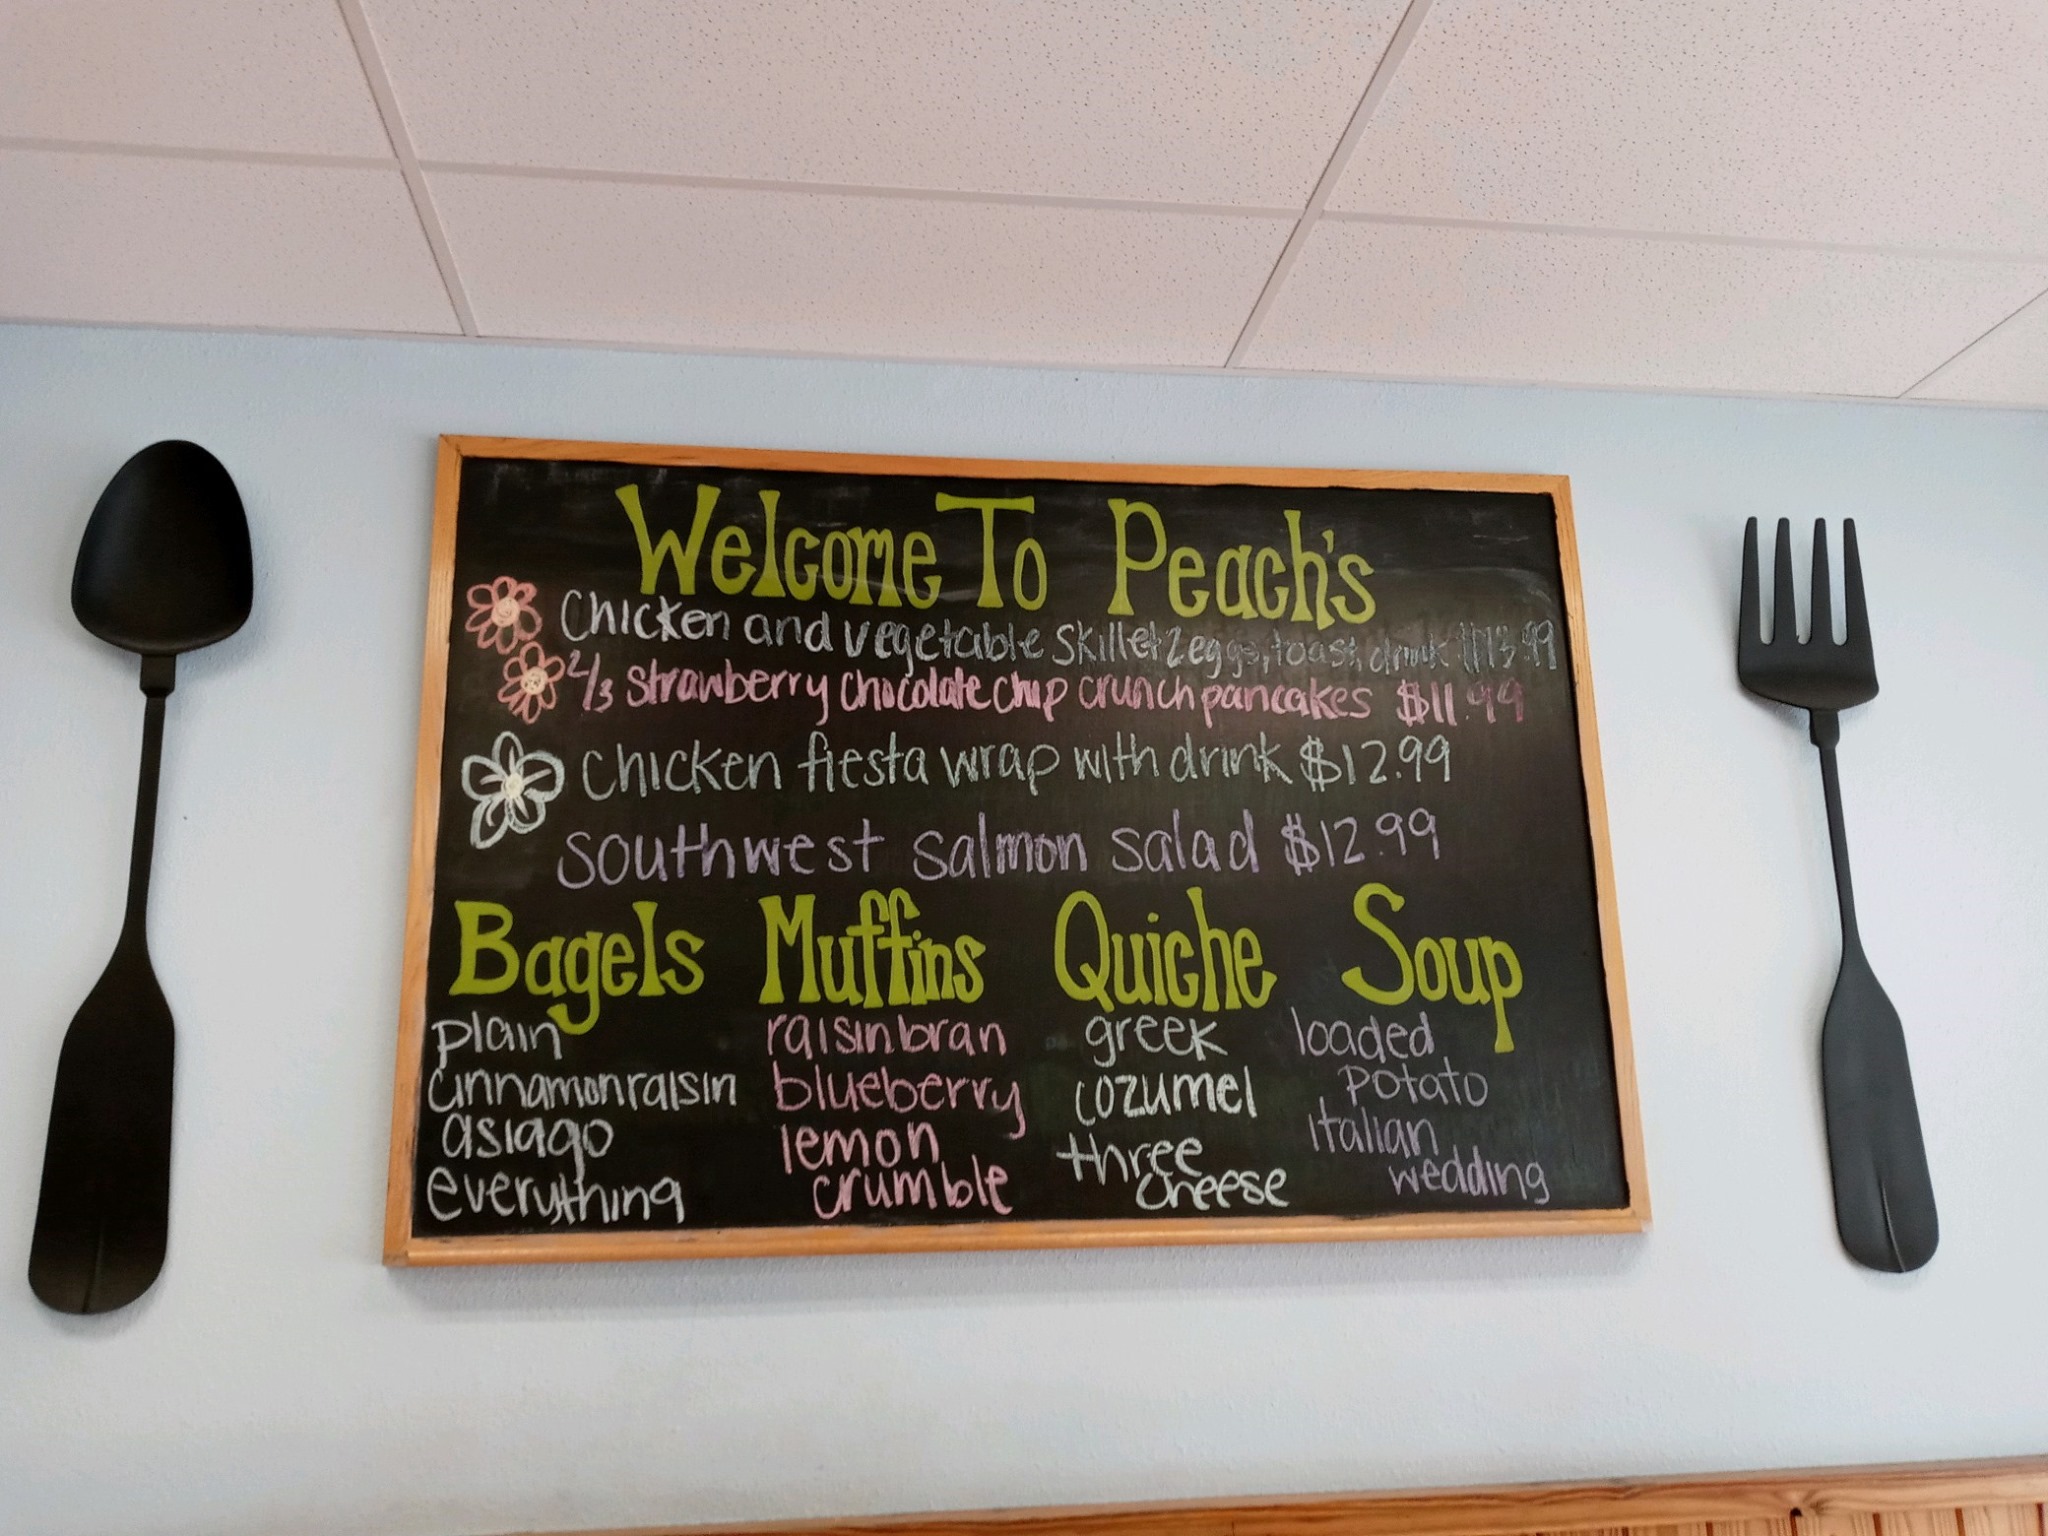 Welcome To Peach's
Chicken and vegetable skillet 2 eggs, toast, drink $13.99
2/3 strawberry chocolate chip crunch pancakes $11.99
Chicken fiesta wrap with drink $12.99
southwest salmon salad $12.99
Bagels Muffins Quiche Soup
plain raisin bran greek loaded
cinnamon raisin blueberry cozumel potato
asiago lemon three Italian
everything crumble cheese wedding